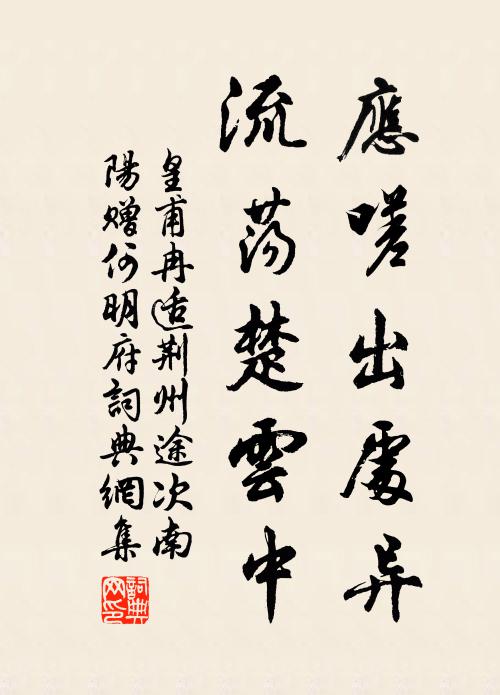 應嗟出處异
流蕩楚雲中
皇甫冉适荆州途次南
陽贈何明府詞典網集
詞典
网印